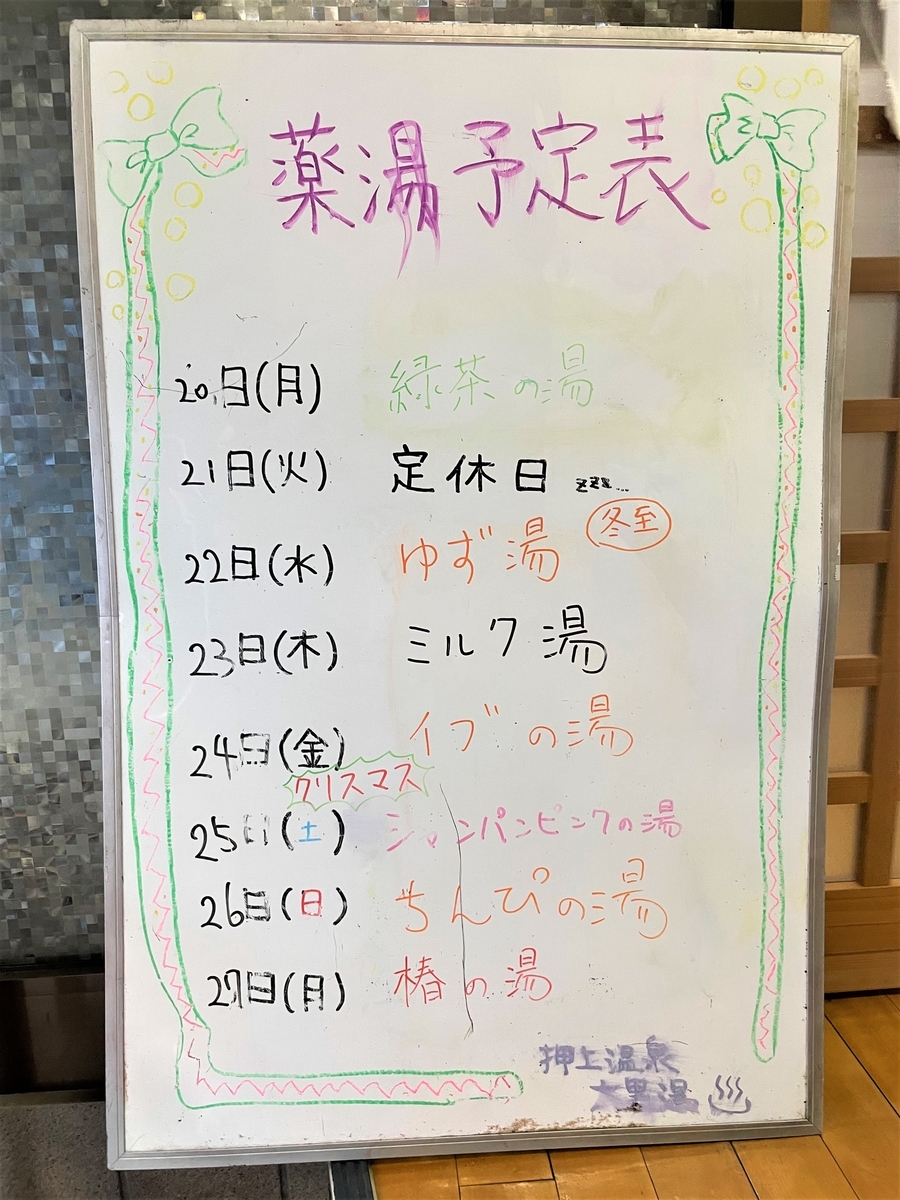 薬湯予定表
20日(月) 緑茶の湯
21日(火) 定休日 zzz...
冬至
22日(水) ゆず湯
23日(木) ミルク湯
24日(金) イブの湯
クリスマス
25日(土) シャンパンピンクの湯
26日(日) ちんぴの湯
27日(月) 椿の湯
押上温泉
大黒湯